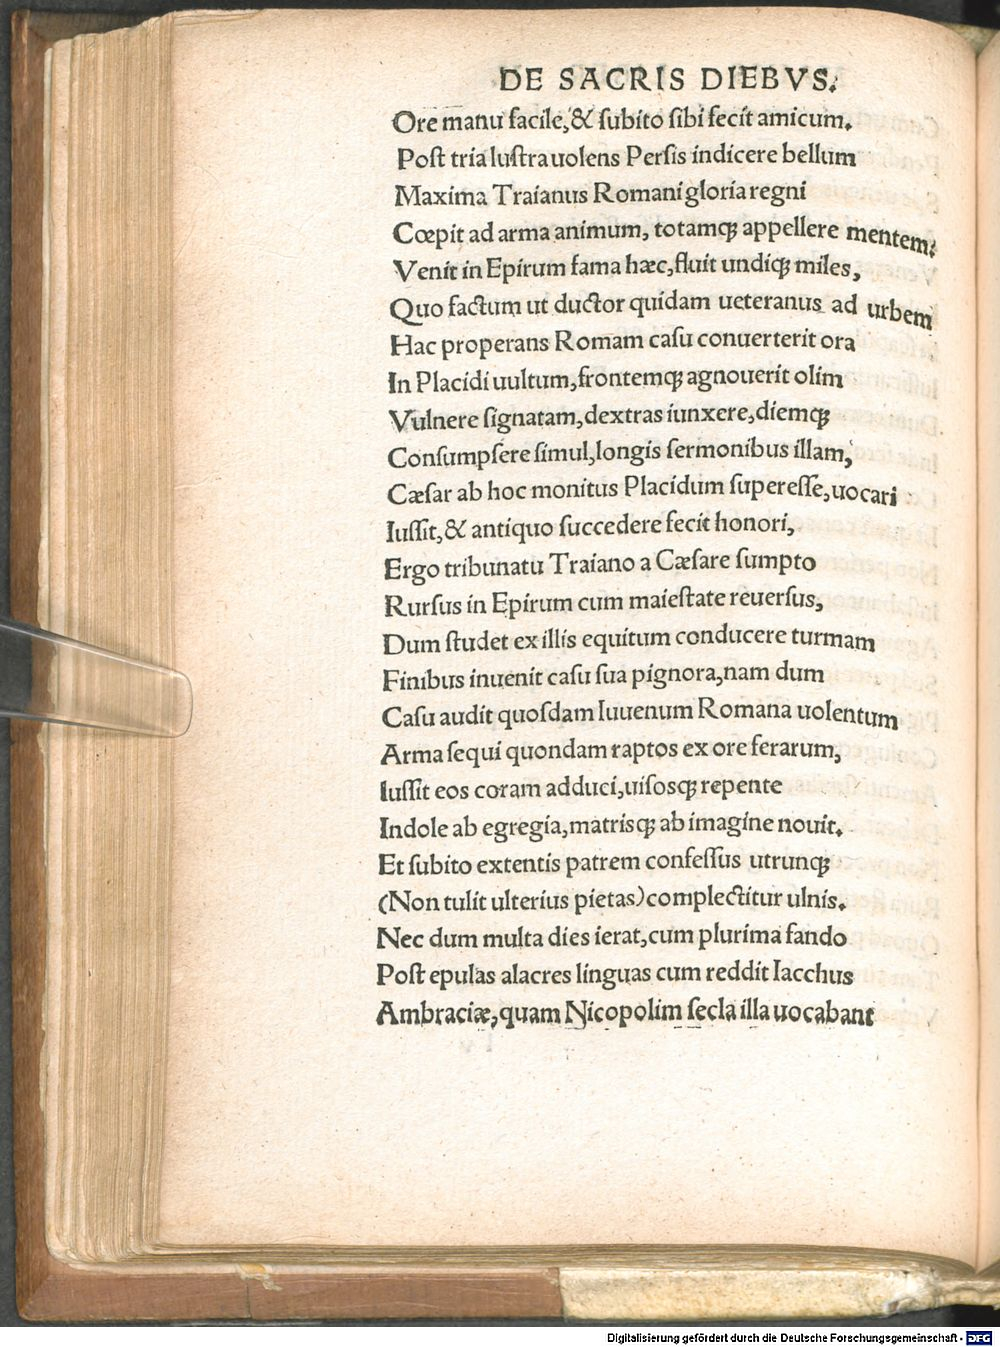 DE SACRIS DIEBVS.
Ore manu facile, & ſubito ſibi fecit amicum.
Poſt tria luſtra uolens Perſis indicere bellum
Maxima Traianus Romani gloria regni
Cœpit ad arma animum, totamq; appellere mentem:
Venit in Epirum fama hæc, fluit undiq; miles,
Quo factum ut ductor quidam ueteranus ad urbem
Hac properans Romam caſu conuerterit ora
In Placidi uultum, frontemq; agnouerit olim
Vulnere ſignatam, dextras iunxere, diemq;
Conſumpſere ſimul, longis ſermonibus illam,
Cæſar ab hoc monitus Placidum ſupereſſe, uocari
Iuſſit, & antiquo ſuccedere fecit honori,
Ergo tribunatu Traiano a Cæſare ſumpto
Rurſus in Epirum cum maieſtate reuerſus,
Dum ſtudet ex illis equitum conducere turmam
Finibus inuenit caſu ſua pignora, nam dum
Caſu audit quoſdam Iuuenum Romana uolentum
Arma ſequi quondam raptos ex ore ferarum,
Iuſſit eos coram adduci, uiſosq; repente
Indole ab egregia, matrisq; ab imagine nouit.
Et ſubito extentis patrem confeſſus utrunq;
(Non tulit ulterius pietas) complectitur ulnis.
Nec dum multa dies ierat, cum plurima fando
Poſt epulas alacres linguas cum reddit Iacchus
Ambraciæ, quam Nicopolim ſecla illa uocabant
Digitalisierung gefördert durch die Deutsche Forschungsgemeinschaft - DFG